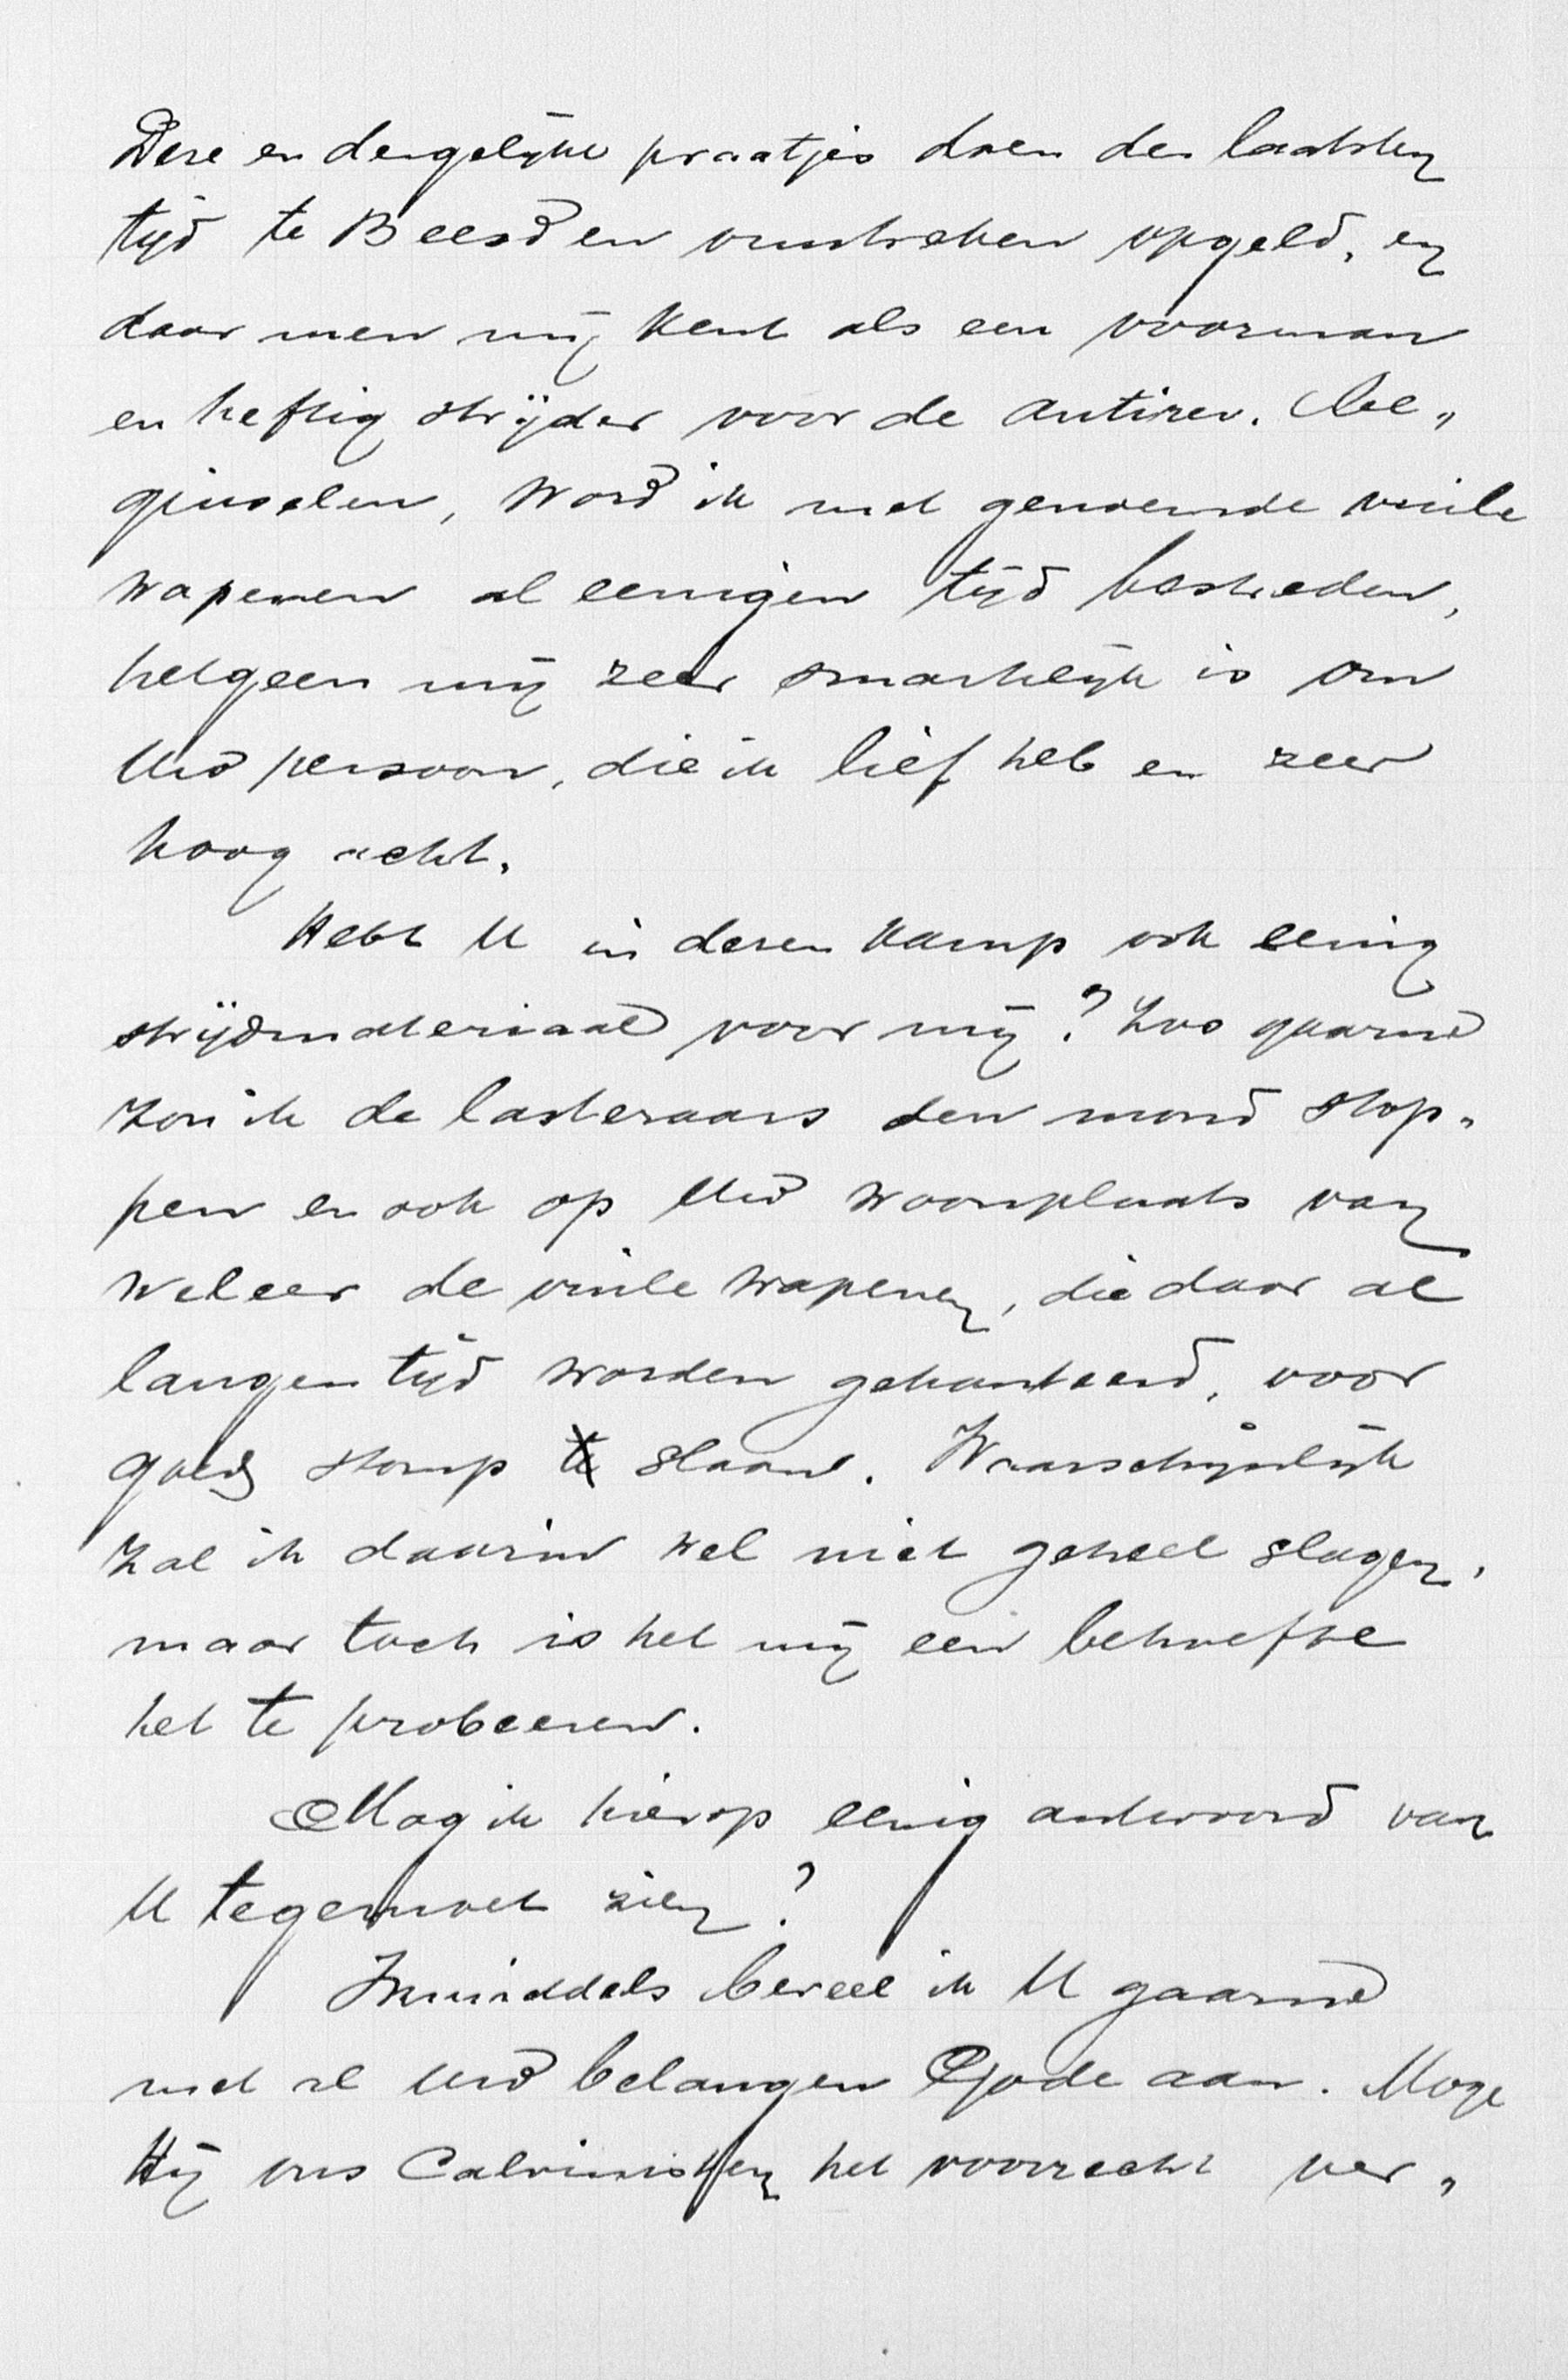 Deze en dergelijke praatjes doen den laatsten
tijd te Beesd en omstreken opgeld, en
daar men mij kent als een voorman
en heftig strijder voor de antirev. be„
ginselen, word ik met genoemde vuile
wapenen al eenigen tijd bestreden,
hetgeen mij zeer smartelijk is om
Uw persoon, die ik lief heb en zeer
hoog acht.
Hebt U in dezen kamp ook eenig
strijdmateriaal voor mij? Zoo gaarne
zou ik de lasteraars den mond stop„
pen en ook op Uw woonplaats van
weleer de vuile wapenen, die daar al
langen tijd worden gehanteerd, voor
goed stomp te slaan. Waarschijnlijk
zal ik daarin wel niet geheel slagen,
maar toch is het mij een behoefte
het te probeeren.
Mag ik hierop eenig antwoord van
U tegemoet zien?
Inmiddels beveel ik U gaarne
met al Uw belangen Gode aan. Moge
Hij ons Calvinisten het voorrecht ver„